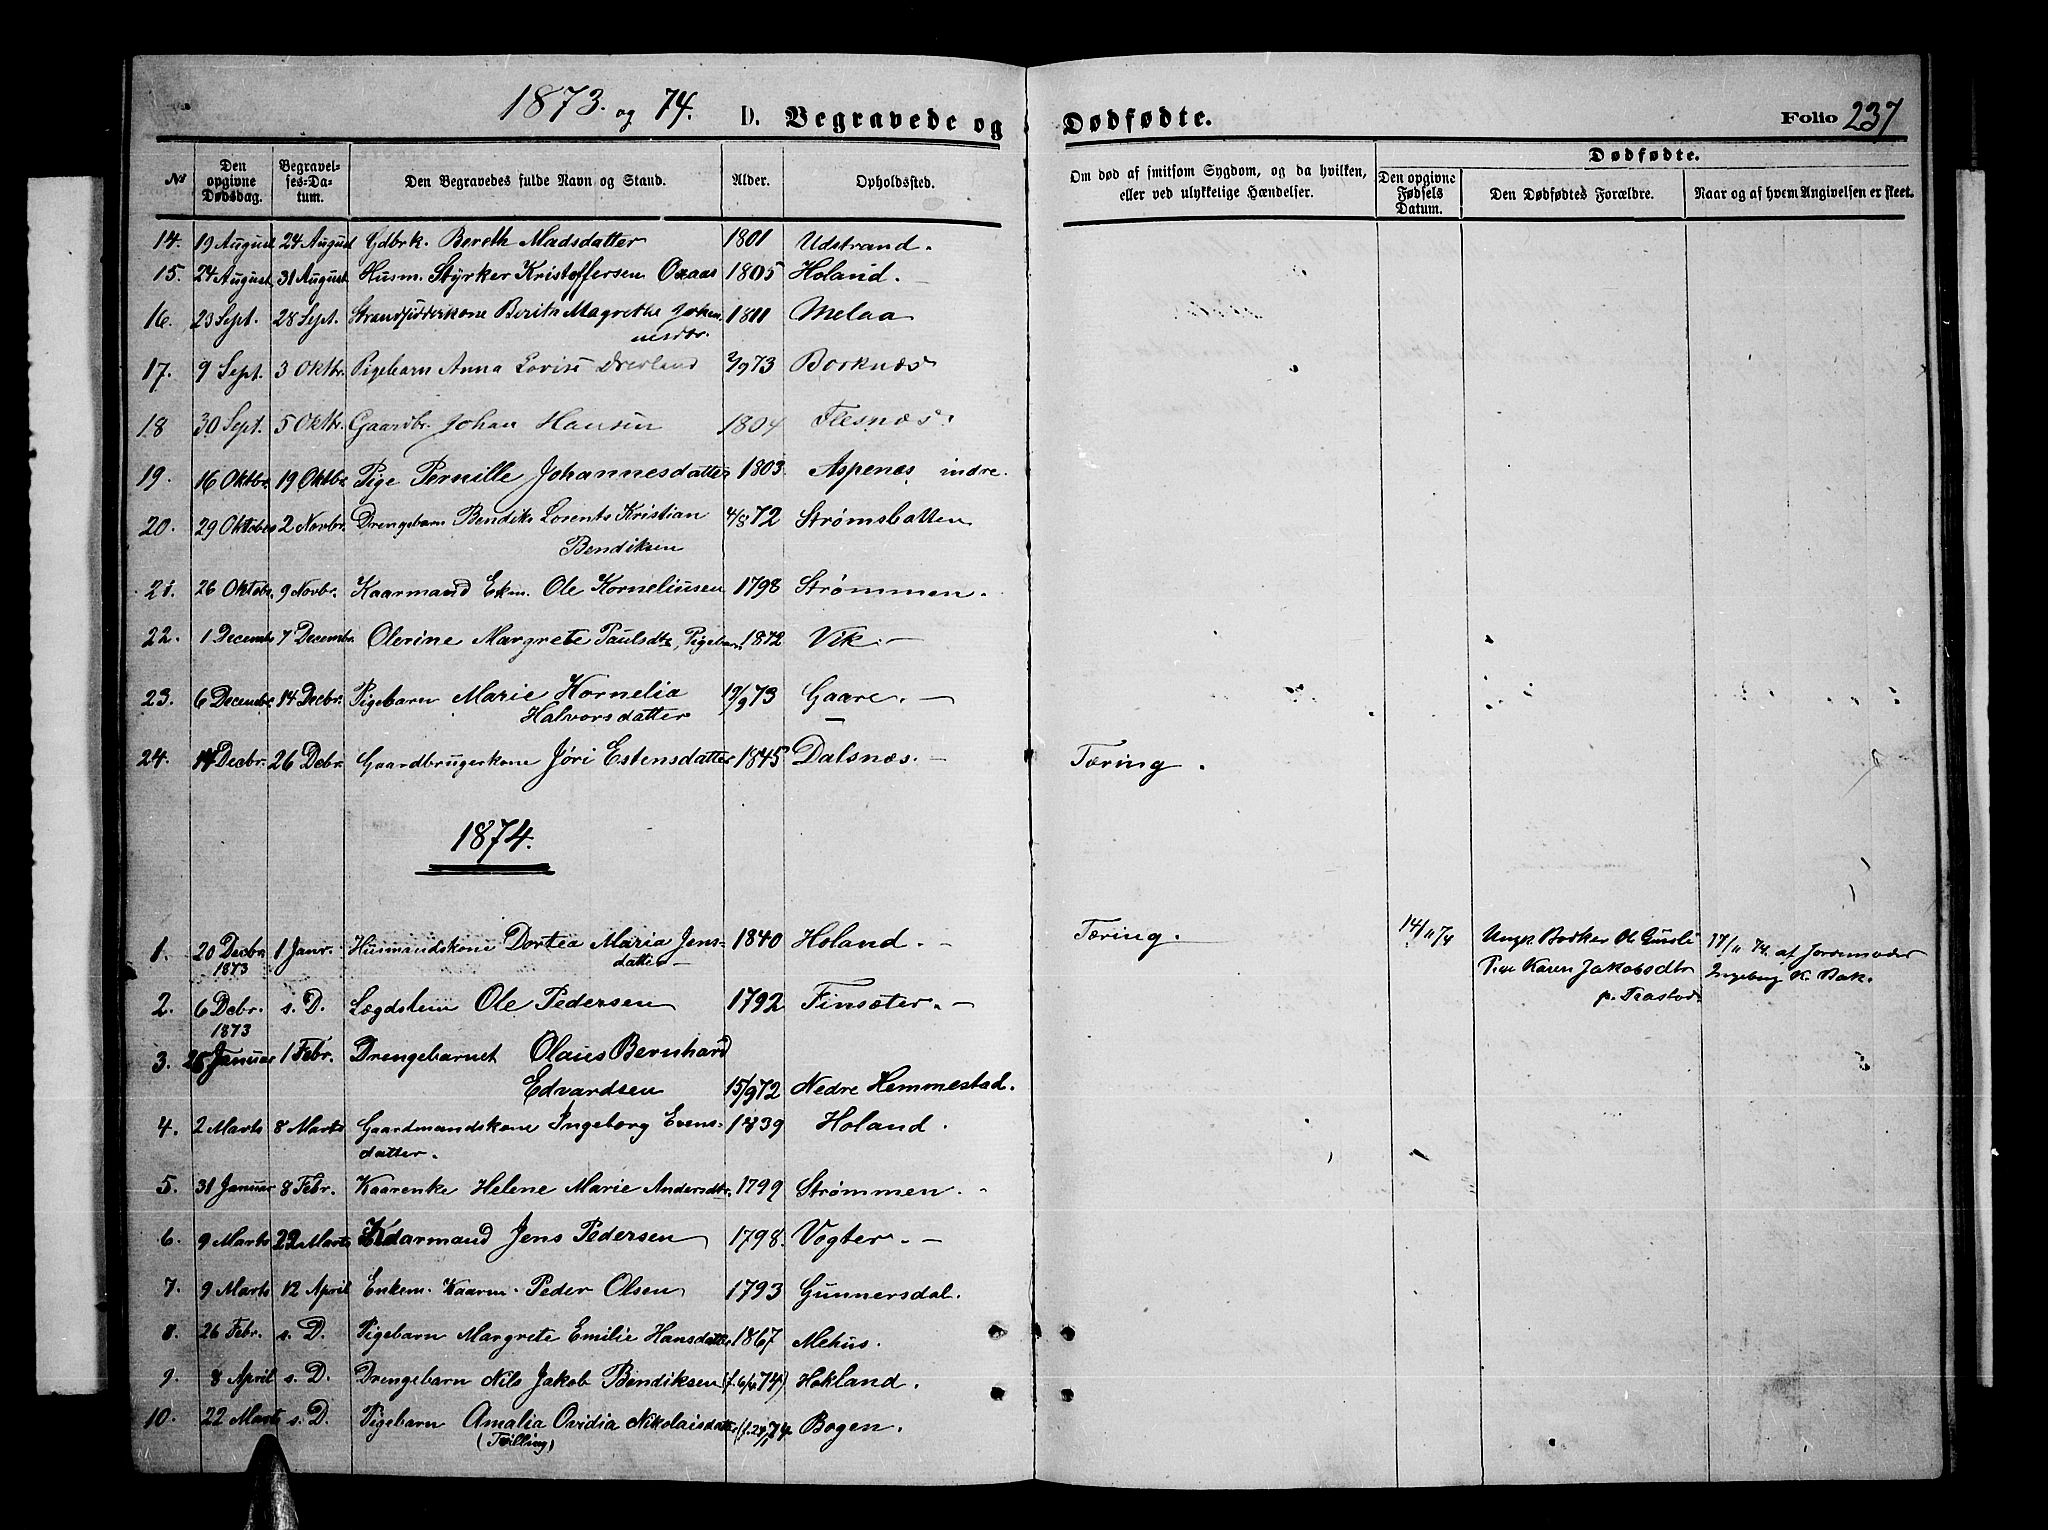 1873. og 74. D. Begravede og Dødfødte. Folio 237
No
Den opgivne Dødsdag.
Begravelses-Datum.
Den Begravedes fulde Navn og Stand.
Alder.
Opholdssted.
Om død af smitsom Sygdom, og da hvilken, eller ved ulykkelige Hændelser.
Dødfødte.
Den opgivne Fødsels Datum.
Den Dødfødtes Forældre.
Naar og af hvem Angivelsen er skeet.
14. 19 August 24 August Gdbrk. Bereth Madsdatter 1801 Udstrand.
15. 24 August 31 August Husm. Styrker Kristoffersen Oxaas 1805 Holand.
16. 23 Sept. 28 Sept. Strandsidderkone Berith Magrethe Johan-
nesdtr. 1811 Melaa
17. 9 Sept. 3 Oktbr. Pigebarn Anna Lovise Drevland 2/9 73 Borknæs
18 30 Sept. 5 Oktbr. Gaardbr. Johan Hansen 1804 Flesnæs.
19. 16 Oktbr. 19 Oktbr. Pige Pernille Johannesdatter 1803. Aspenæs indre.
20. 29 Oktober 2 Novbr. Drengebarn Bendiks Lorents Kristian 4/8 72 Strømsbotten
Bendiksen
21. 26 Oktobr. 9 Novbr. Kaarmand Ekm. Ole Korneliusen 1798 Strømmen.
22. 1 Decemb 7 Decembr. Olerine Margrete Paulsdtr, Pigebarn 1872 Vik. —
23. 6 Decembr 14 Decbr. Pigebarn Marie Kornelia 19/9 73 Gaare. —
Halvorsdatter
24. 14 Decbr. 26 Dcbr. Gaardbrugerkone Jøri Estensdatter 1845 Dalsnæs. — Tæring.
1874.
1. 20 Decbr. 1873 1 Janr. Husmandskone Dortea Maria Jens-
datter 1840 Holand. — Tæring. 14/11 74
Ungk. Ole
Pige Karen Jakobsdtr
p.
17/11 74. af Jordemoder
Ingebrg K. Bak.
2. 6 Dcbr. 1873 s. D. Lægdslem Ole Pedersen 1792 Finsæter. —
3. 25 Januar 1 Febr. Drengebarnet Olaus Bernhard
Edvardsen 15/9 72 Nedre Hemmestad.
4. 2 Marts 8 Marts Gaardmandskone Ingeborg Evens-
datter. 1839 Holand.
5. 31 Januar 8 Febr. Kaarenke Helene Marie Andersdtr. 1799 Strømmen. -
6. 9 Marts 22 Marts Kaarmand Jens Pedersen 1798. Vogter. —
7. 9 Marts 12 April Enkem. Kaarm. Peder Olsen 1793 Gunnersdal.
8. 26 Febr. s. D. Pigebarn Margrete Emilie Hansdatter 1867 Mehus.
9. 8 April s. D. Drengebarn Nils Jakob Bendiksen (f. 6/4 74) Hokland.
10. 22 Marts s. D. Pigebarn Amalia Ovidia Nikolaisdatter (f. 74. Bogen.
(Tvilling)